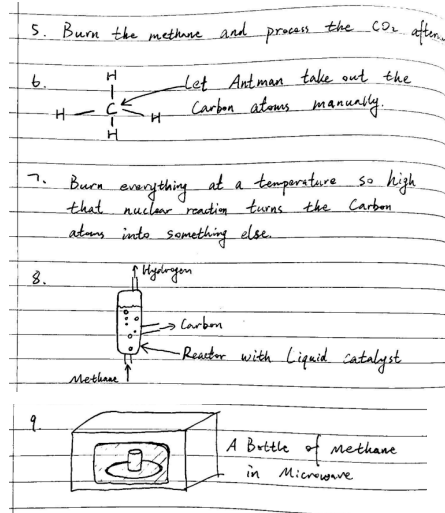 5. Burn the methane and process the CO2 after...
6.
H
H C H
H
Let Antman take out the
Carbon atoms manually.
7. Burn everything at a temperature so high
that nuclear reaction turns the Carbon
atoms into something else.
8.
Hydrogen
Carbon
Reactor with Liquid catalyst
Methane
9.
A Bottle of Methane
in Microwave